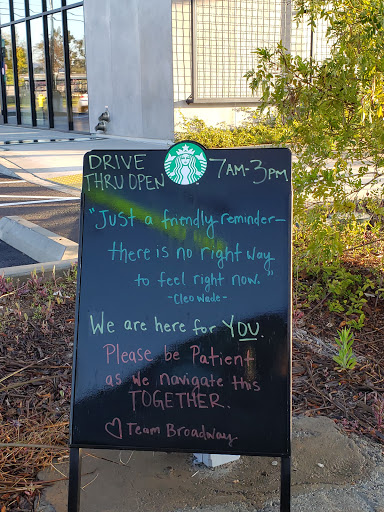 DRIVE THRU OPEN 7AM-3PM
"Just a friendly reminder—
there is no right way
to feel right now."
-Cleo Wade-
We are here for YOU.
Please be Patient
as we navigate this
TOGETHER.
♡ Team Broadway